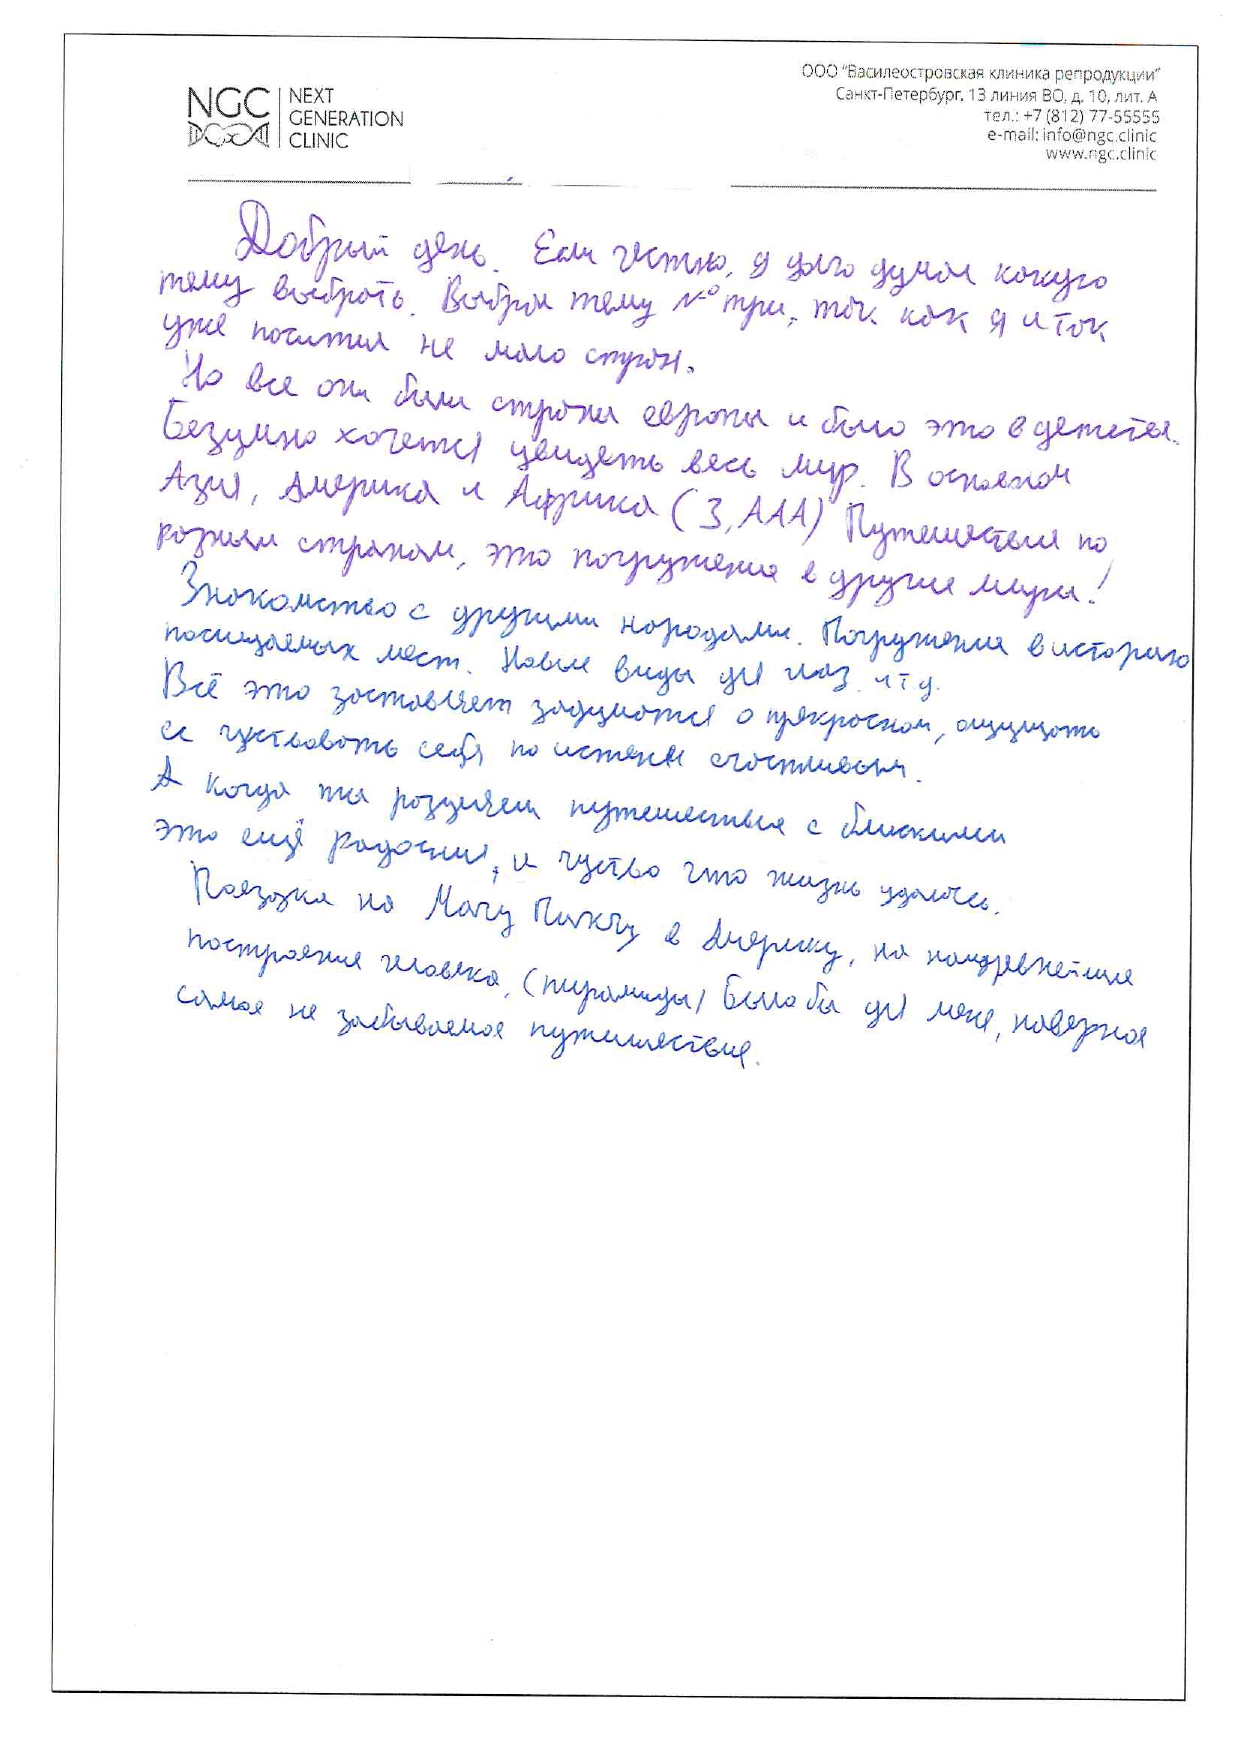 NGC NEXT GENERATION CLINIC
ООО "Василеостровская клиника репродукции"
Санкт-Петербург, 13 линия ВО, д. 10, лит. А
тел.: +7 (812) 77-55555
e-mail: info@ngc.clinic
www.ngc.clinic
Добрый день. Если честно, я долго думал какую
тему выбрать. Выбрал тему №три, так как я и так
уже поситил не мало стран.
Но все они были страны европы и было это в детстве.
Безумно хочется увидеть весь мир. В основном
Азия, Америка и Африка (3, ААА) Путешествия по
разным странам, это погружение в другие миры!
Знакомство с другими народами. Погружение в историю
посищаемых мест. Новые виды для глаз и т д.
Всё это заставляет задуматся о прекрасном, ощущать
и чуствовать себя по истене счастливым.
А когда ты разделяеш путешествия с близкими
это ещё радосния, и чуство что жизнь удалась.
Поездка на Мачу Пикчу в Америку, на наидревнейшие
построения человека, (пирамиды) было бы для меня, наверное
самое не забываемое путишествие.